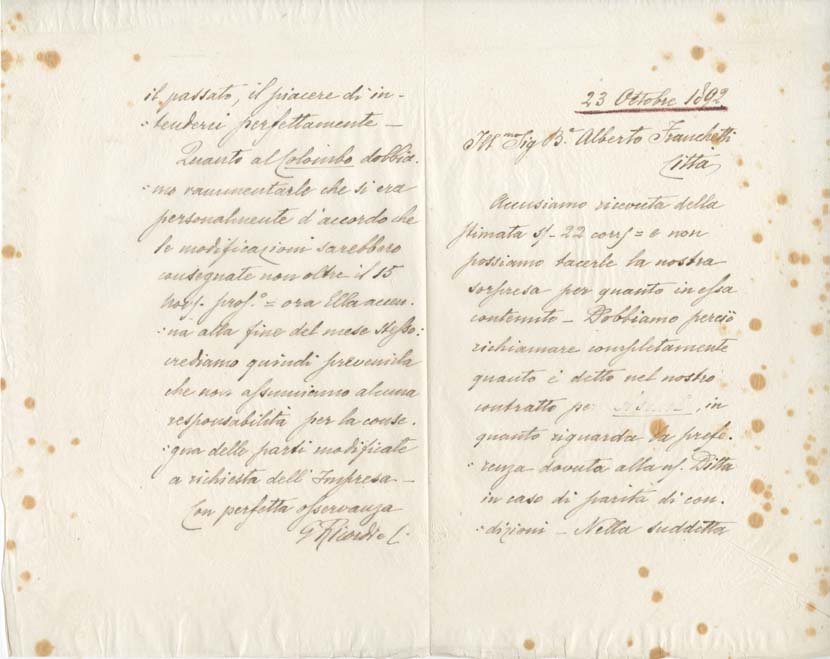 23 Ottobre 1892
Ill.mo Sig B.e Alberto Franchetti
Città
Accusiamo ricevuta della
stimata S/ 22 corr = e non
possiamo tacerle la nostra
sorpresa per quanto in essa
contenuto - Dobbiamo perciò
richiamare completamente
quanto è ditto nel nostro
contratto pe in
quanto riguarda la prefe-
renza dovuta alla ns/ Ditta
in caso di parità di con-
:dizioni - Nella suddetta
il passato, il piacere di in-
:tenderci perfettamente -
Quanto al Colombo dobbia-
:mo rammentarle che si era
personalmente d'accordo che
le modificazioni sarebbero
consegnate non oltre il 15
Nov. pros.o = ora Ella accen-
:na alla fine del mese stesso:
crediamo quindi prevenirla
che non assumiamo alcuna
responsabilità per la conse-
:gna delle parti modificate
a richiesta dell'Impresa -
Con perfetta osservanza
G Ricordi e C.